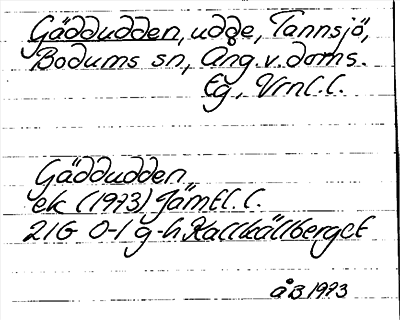 Gäddudden, udde, Tannsjö,
Bodums sn, Ång. v. doms.
Eg., Vrnl.l.
Gäddudden
ek (1973) Jämtl.l.
21G 0-1 g-h Kallkällberget
ÅB 1973